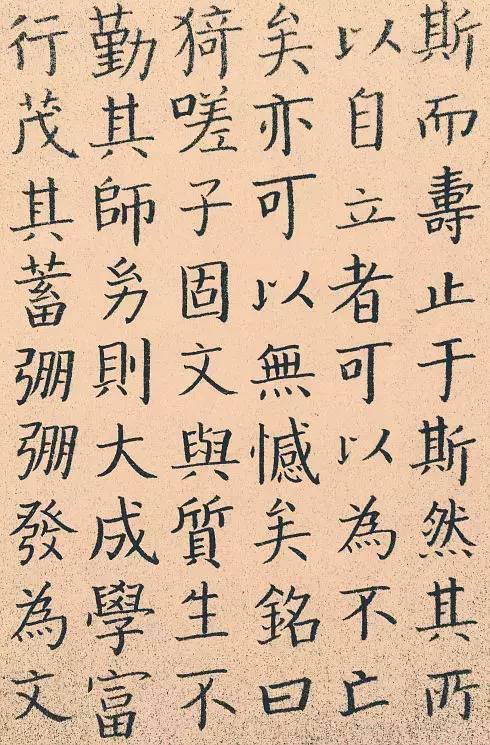 斯而壽止于斯然其所
以自立者可以為不亡
矣亦可以無憾矣銘曰
猗嗟子固文與質生不
勤其師㓜則大成學富
行茂其蓄弸弸發為文